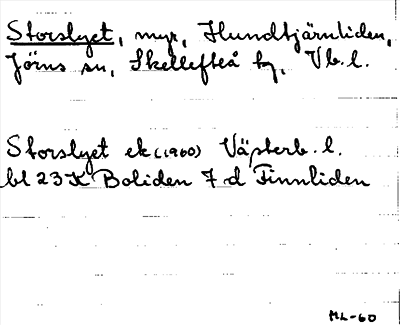 Storslyet, myr, Hundtjärnliden,
Jörns sn, Skellefteå kn, Vb. l.
Storslyet ek (1960) Västerb. l.
bl 23 K Boliden 7 d Finnliden
ML-60